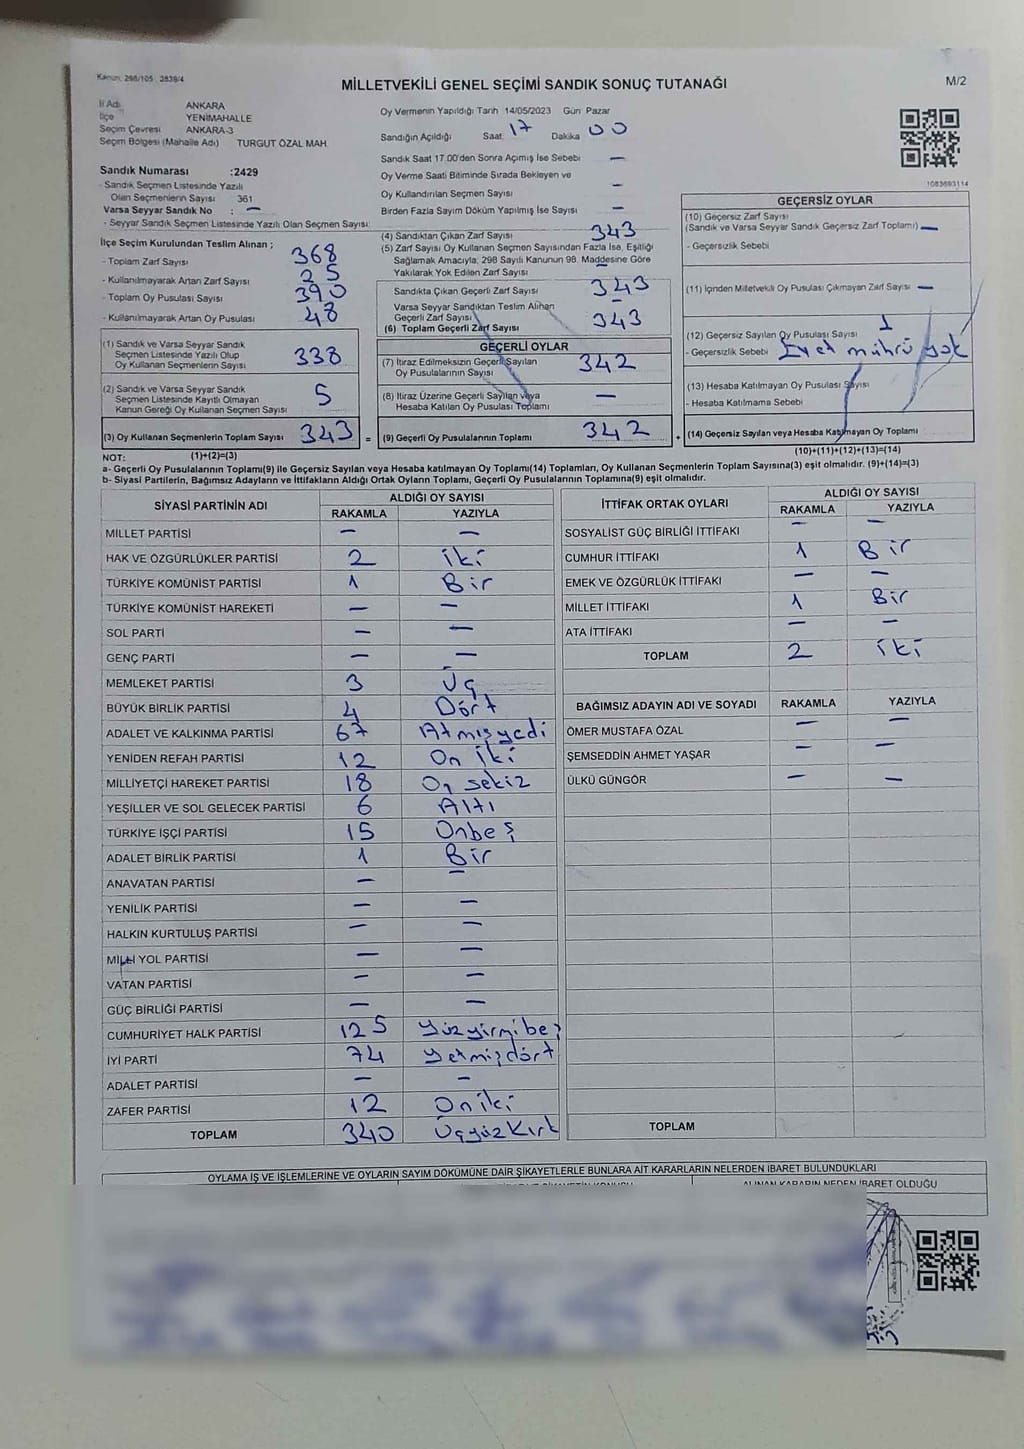 Kanun: 298/105 , 2839/4
MİLLETVEKİLİ GENEL SEÇİMİ SANDIK SONUÇ TUTANAĞI
M/2
İl Adı ANKARA
İlçe YENİMAHALLE
Seçim Çevresi ANKARA-3
Seçim Bölgesi (Mahalle Adı) TURGUT ÖZAL MAH.
Sandık Numarası :2429
- Sandık Seçmen Listesinde Yazılı
Olan Seçmenlerin Sayısı 361
Varsa Seyyar Sandık No : —
- Seyyar Sandık Seçmen Listesinde Yazılı Olan Seçmen Sayısı:
İlçe Seçim Kurulundan Teslim Alınan ;
- Toplam Zarf Sayısı 368
- Kullanılmayarak Artan Zarf Sayısı 25
- Toplam Oy Pusulası Sayısı 390
- Kullanılmayarak Artan Oy Pusulası 48
(1) Sandık ve Varsa Seyyar Sandık
Seçmen Listesinde Yazılı Olup
Oy Kullanan Seçmenlerin Sayısı 338
(2) Sandık ve Varsa Seyyar Sandık
Seçmen Listesinde Kayıtlı Olmayan
Kanun Gereği Oy Kullanan Seçmen Sayısı 5
(3) Oy Kullanan Seçmenlerin Toplam Sayısı 343 =
Oy Vermenin Yapıldığı Tarih 14/05/2023 Gün: Pazar
Sandığın Açıldığı Saat 17 Dakika 00
Sandık Saat 17.00'den Sonra Açımış İse Sebebi —
Oy Verme Saati Bitiminde Sırada Bekleyen ve
Oy Kullandırılan Seçmen Sayısı —
Birden Fazla Sayım Döküm Yapılmış İse Sayısı —
(4) Sandıktan Çıkan Zarf Sayısı 343
(5) Zarf Sayısı Oy Kullanan Seçmen Sayısından Fazla İse, Eşitliği
Sağlamak Amacıyla, 298 Sayılı Kanunun 98. Maddesine Göre
Yakılarak Yok Edilen Zarf Sayısı —
Sandıkta Çıkan Geçerli Zarf Sayısı 343
Varsa Seyyar Sandıktan Teslim Alınan
Geçerli Zarf Sayısı —
(6) Toplam Geçerli Zarf Sayısı 343
GEÇERLİ OYLAR
(7) İtiraz Edilmeksizin Geçerli Sayılan
Oy Pusulalarının Sayısı 342
(8) İtiraz Üzerine Geçerli Sayılan veya
Hesaba Katılan Oy Pusulası Toplamı —
(9) Geçerli Oy Pusulalarının Toplamı 342 +
1083693114
GEÇERSİZ OYLAR
(10) Geçersiz Zarf Sayısı
(Sandık ve Varsa Seyyar Sandık Geçersiz Zarf Toplamı) —
- Geçersizlik Sebebi
(11) İçinden Milletvekili Oy Pusulası Çıkmayan Zarf Sayısı —
(12) Geçersiz Sayılan Oy Pusulası Sayısı 1
- Geçersizlik Sebebi Evet mührü yok
(13) Hesaba Katılmayan Oy Pusulası Sayısı
- Hesaba Katılmama Sebebi
(14) Geçersiz Sayılan veya Hesaba Katılmayan Oy Toplamı
NOT: (1)+(2)=(3) (10)+(11)+(12)+(13)=(14)
a- Geçerli Oy Pusulalarının Toplamı(9) ile Geçersiz Sayılan veya Hesaba katılmayan Oy Toplamı(14) Toplamları, Oy Kullanan Seçmenlerin Toplam Sayısına(3) eşit olmalıdır. (9)+(14)=(3)
b- Siyasi Partilerin, Bağımsız Adayların ve İttifakların Aldığı Ortak Oyların Toplamı, Geçerli Oy Pusulalarının Toplamına(9) eşit olmalıdır.
SİYASİ PARTİNİN ADI ALDIĞI OY SAYISI
RAKAMLA YAZIYLA
MİLLET PARTİSİ — —
HAK VE ÖZGÜRLÜKLER PARTİSİ 2 iki
TÜRKİYE KOMÜNİST PARTİSİ 1 Bir
TÜRKİYE KOMÜNİST HAREKETİ — —
SOL PARTİ — —
GENÇ PARTİ — —
MEMLEKET PARTİSİ 3 Üç
BÜYÜK BİRLİK PARTİSİ 4 Dört
ADALET VE KALKINMA PARTİSİ 67 Atmışyedi
YENİDEN REFAH PARTİSİ 12 On iki
MİLLİYETÇİ HAREKET PARTİSİ 18 On sekiz
YEŞİLLER VE SOL GELECEK PARTİSİ 6 Altı
TÜRKİYE İŞÇİ PARTİSİ 15 Onbeş
ADALET BİRLİK PARTİSİ 1 Bir
ANAVATAN PARTİSİ — —
YENİLİK PARTİSİ — —
HALKIN KURTULUŞ PARTİSİ — —
MİLLİ YOL PARTİSİ — —
VATAN PARTİSİ — —
GÜÇ BİRLİĞİ PARTİSİ — —
CUMHURİYET HALK PARTİSİ 125 Yüzyirmibeş
İYİ PARTİ 74 Yetmişdört
ADALET PARTİSİ — —
ZAFER PARTİSİ 12 Oniki
TOPLAM 340 Üçyüzkırk
İTTİFAK ORTAK OYLARI ALDIĞI OY SAYISI
RAKAMLA YAZIYLA
SOSYALİST GÜÇ BİRLİĞİ İTTİFAKI — —
CUMHUR İTTİFAKI 1 Bir
EMEK VE ÖZGÜRLÜK İTTİFAKI — —
MİLLET İTTİFAKI 1 Bir
ATA İTTİFAKI — —
TOPLAM 2 iki
BAĞIMSIZ ADAYIN ADI VE SOYADI RAKAMLA YAZIYLA
ÖMER MUSTAFA ÖZAL — —
ŞEMSEDDİN AHMET YAŞAR — —
ÜLKÜ GÜNGÖR — —
TOPLAM
OYLAMA İŞ VE İŞLEMLERİNE VE OYLARIN SAYIM DÖKÜMÜNE DAİR ŞİKAYETLERLE BUNLARA AİT KARARLARIN NELERDEN İBARET BULUNDUKLARI
ALINAN KARARIN NEDEN İBARET OLDUĞU